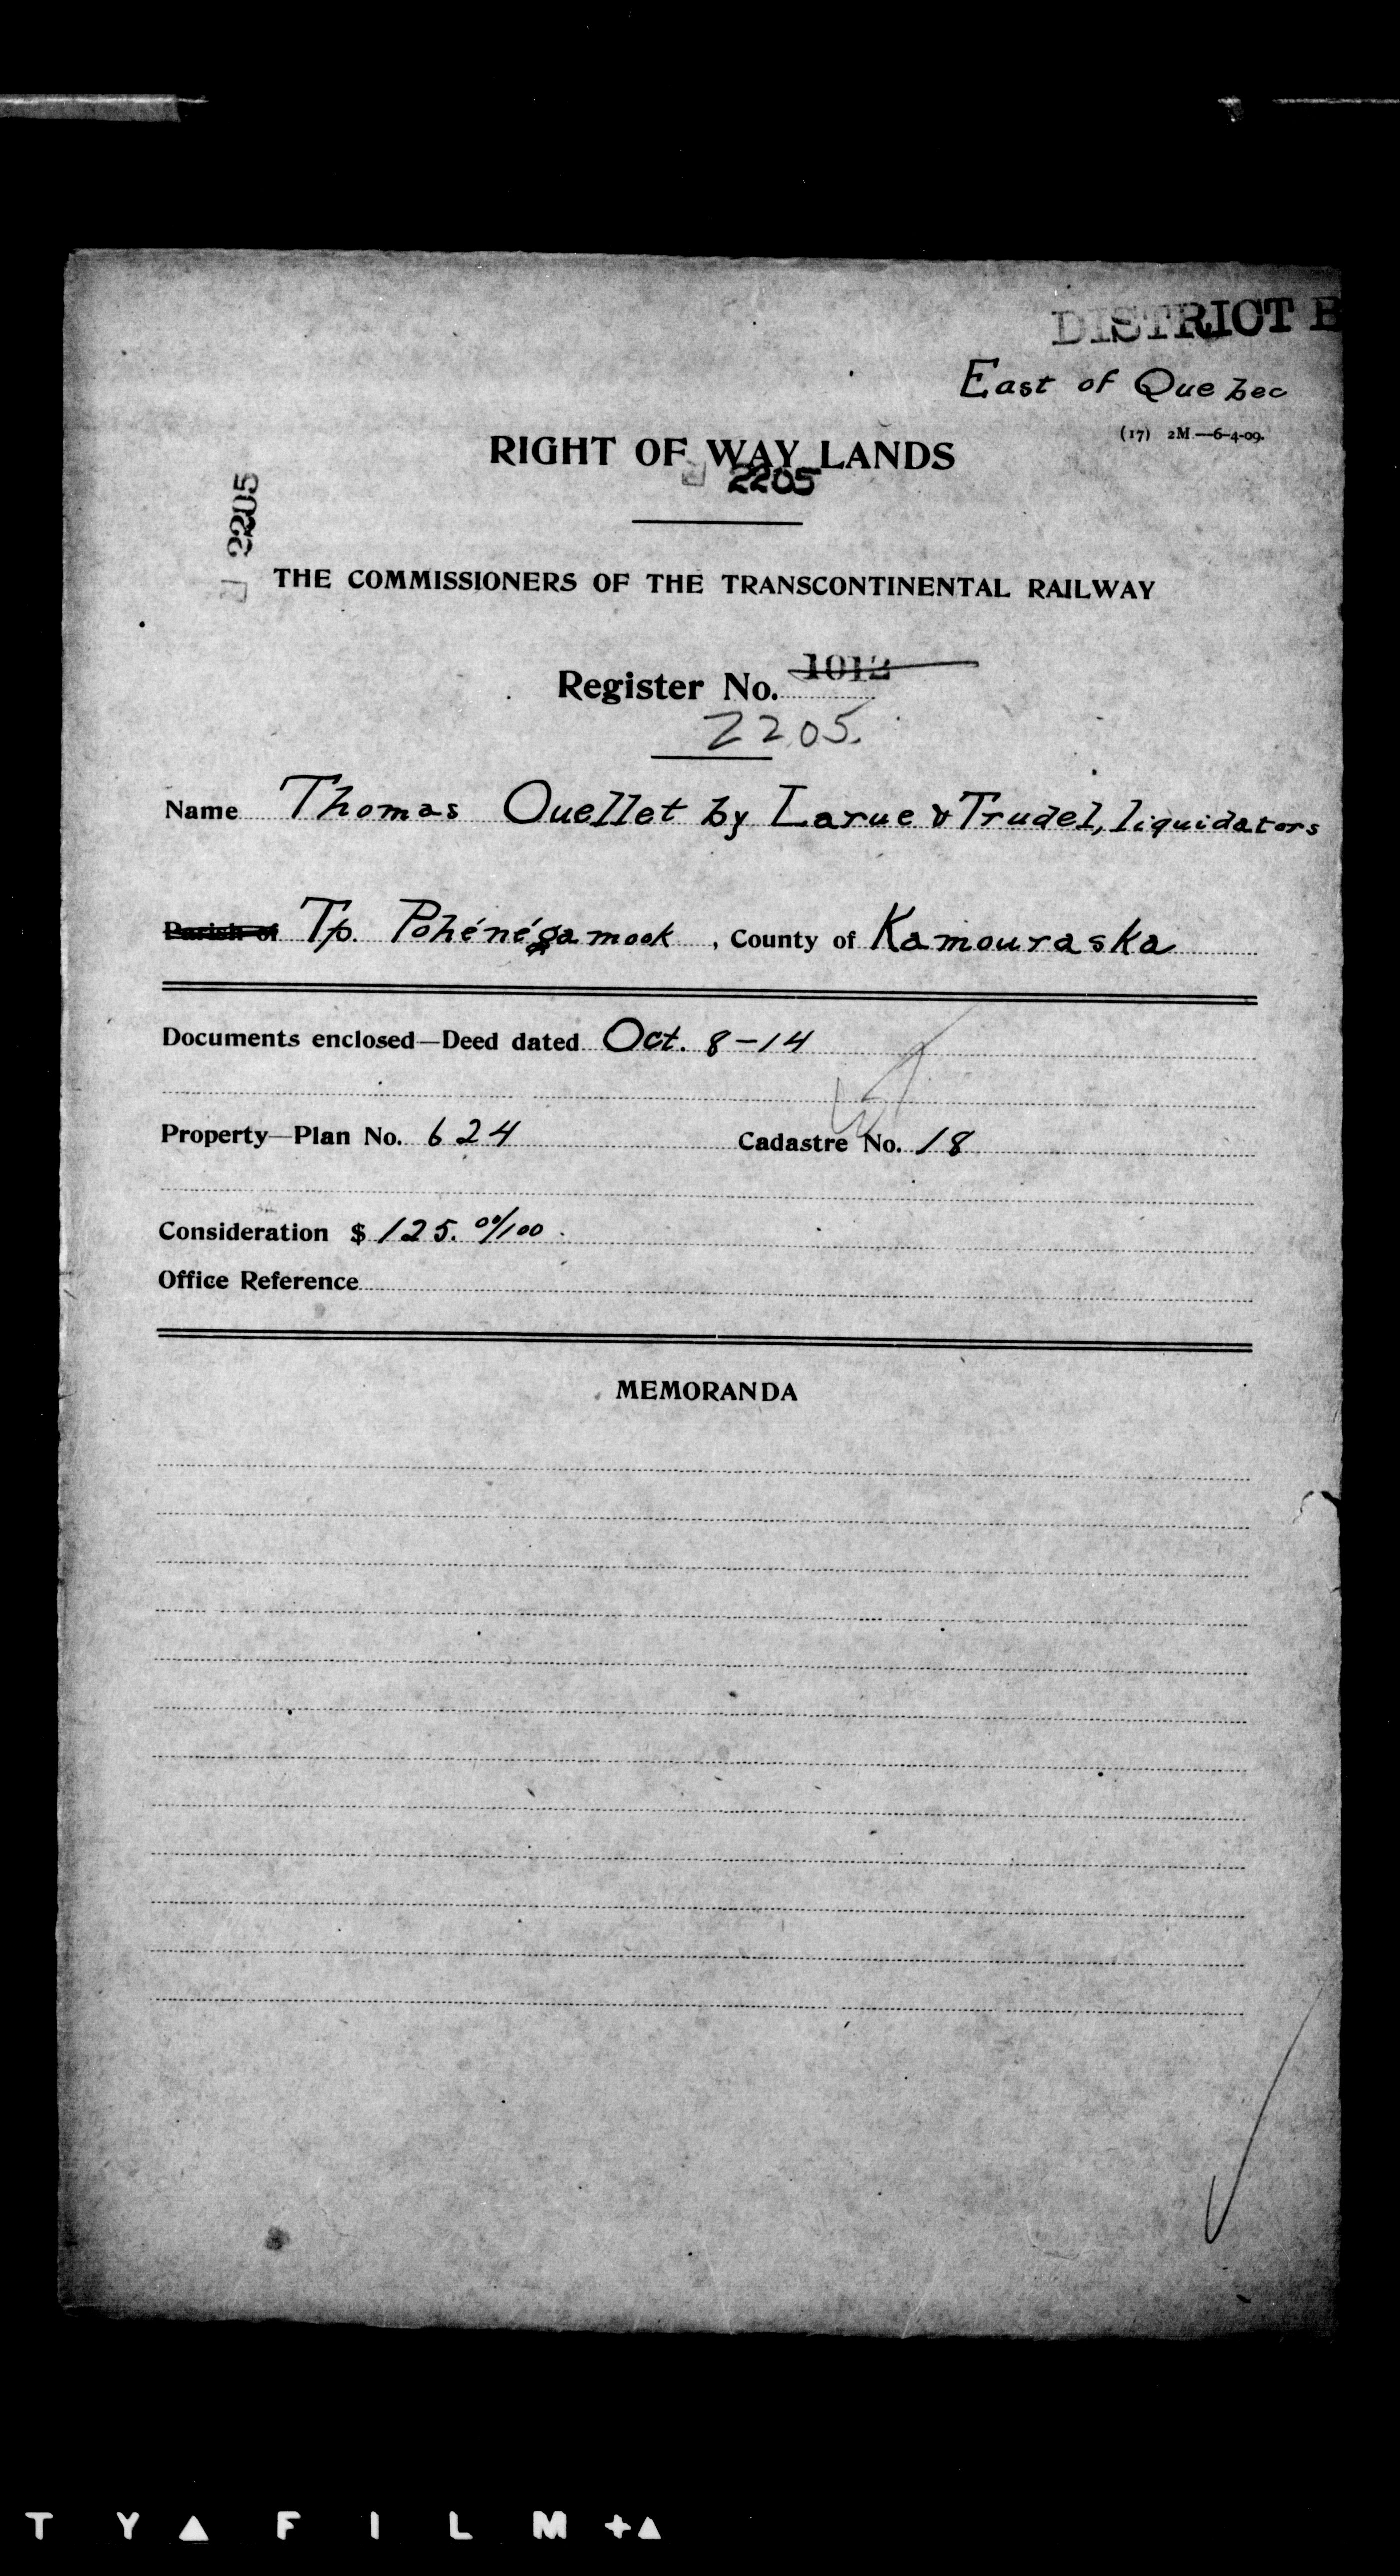 DISTRICT B
East of Quebec
(17) 2M—6-4-09.
RIGHT OF WAY LANDS
2205
2205
THE COMMISSIONERS OF THE TRANSCONTINENTAL RAILWAY
Register No. 1012
2205.
Name Thomas Ouellet by Larue & Trudel, liquidators
Parish of Tp. Pohénégamook, County of Kamouraska
Documents enclosed—Deed dated Oct. 8-14
Property—Plan No. 624 Cadastre No. 18
Consideration $ 125. 00/100.
Office Reference
MEMORANDA
T Y ▲ F I L M + ▲